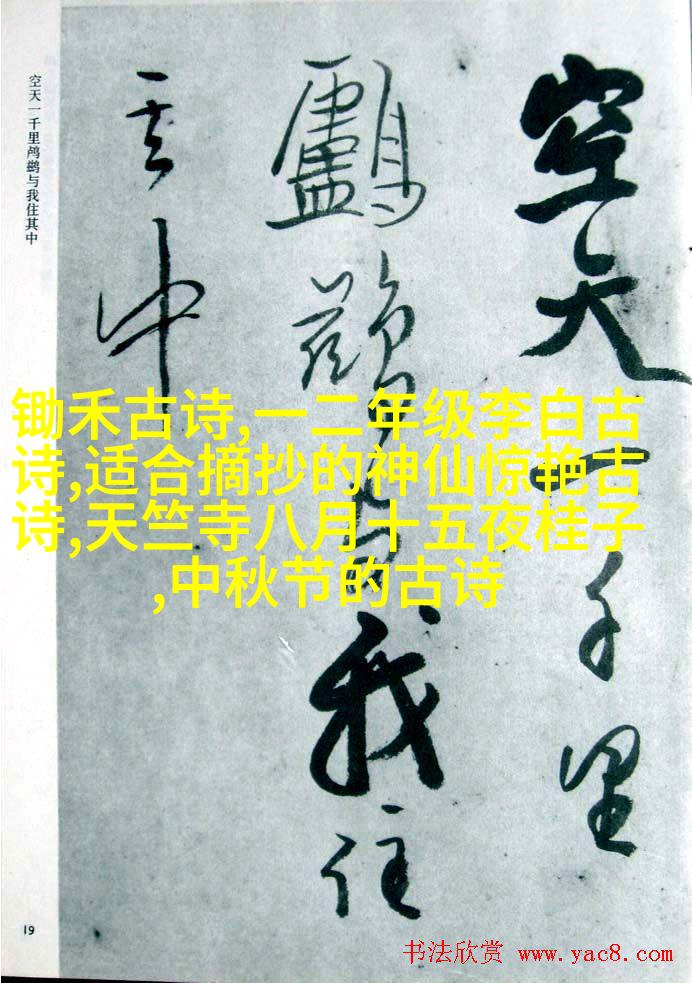 空天一千里
鸕鷀與我住
其中
空天一千里鸬鹚与我住其中
锄禾古诗,一二年级李白古
诗,适合摘抄的神仙惊艳古
诗,天竺寺八月十五夜桂子
,中秋节的古诗
19
书法欣赏 www.yac8.com